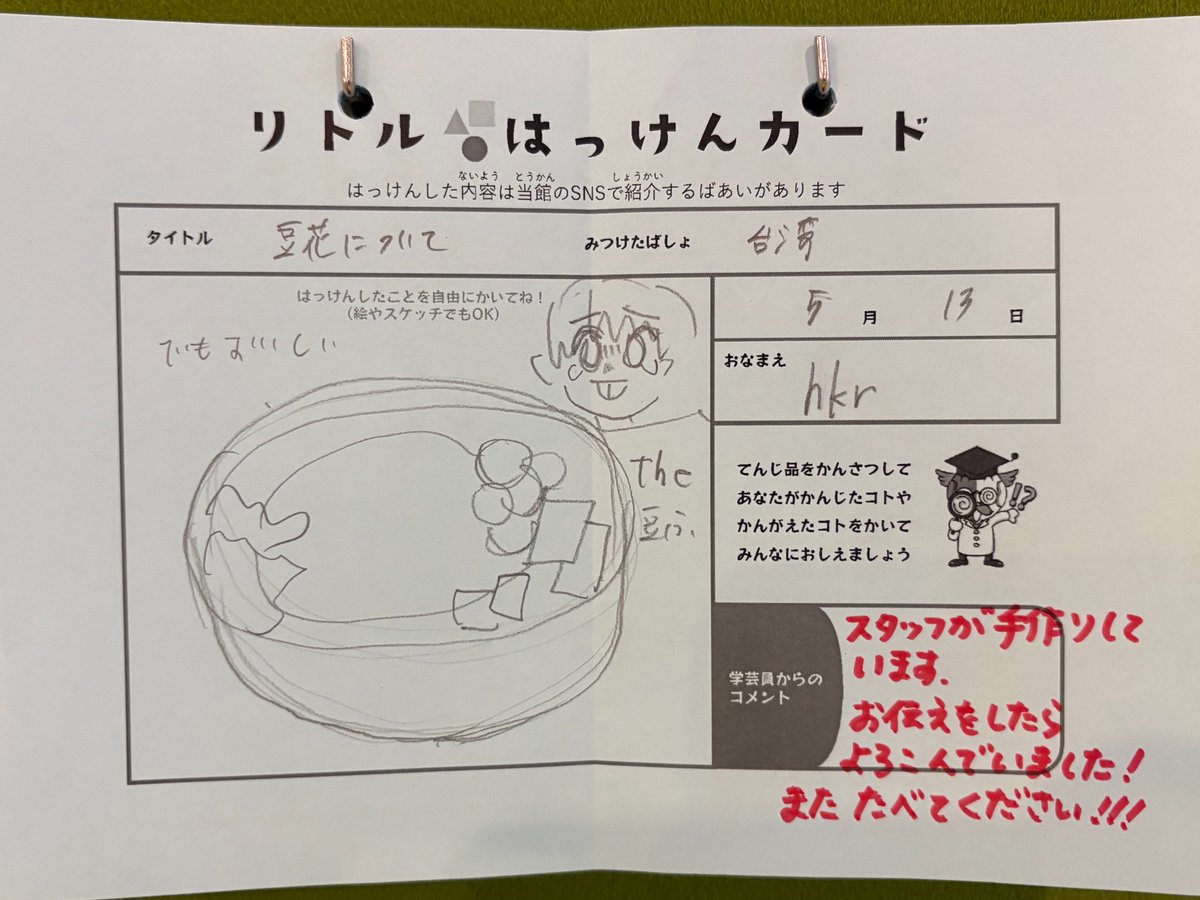 リトルはっけんカード
はっけんした内容は当館のSNSで紹介するばあいがあります
ないよう とうかん しょうかい
タイトル 豆花について みつけたばしょ 台湾
はっけんしたことを自由にかいてね!
(絵やスケッチでもOK)
でもおいしい
the
5月 13日
おなまえ hkr
てんじ品をかんさつして
あなたがかんじたコトや
かんがえたコトをかいて
みんなにおしえましょう
!?
学芸員からの
コメント
スタッフが手作りして
います.
お伝えをしたら
よろこんでいました!
また たべてください!!!